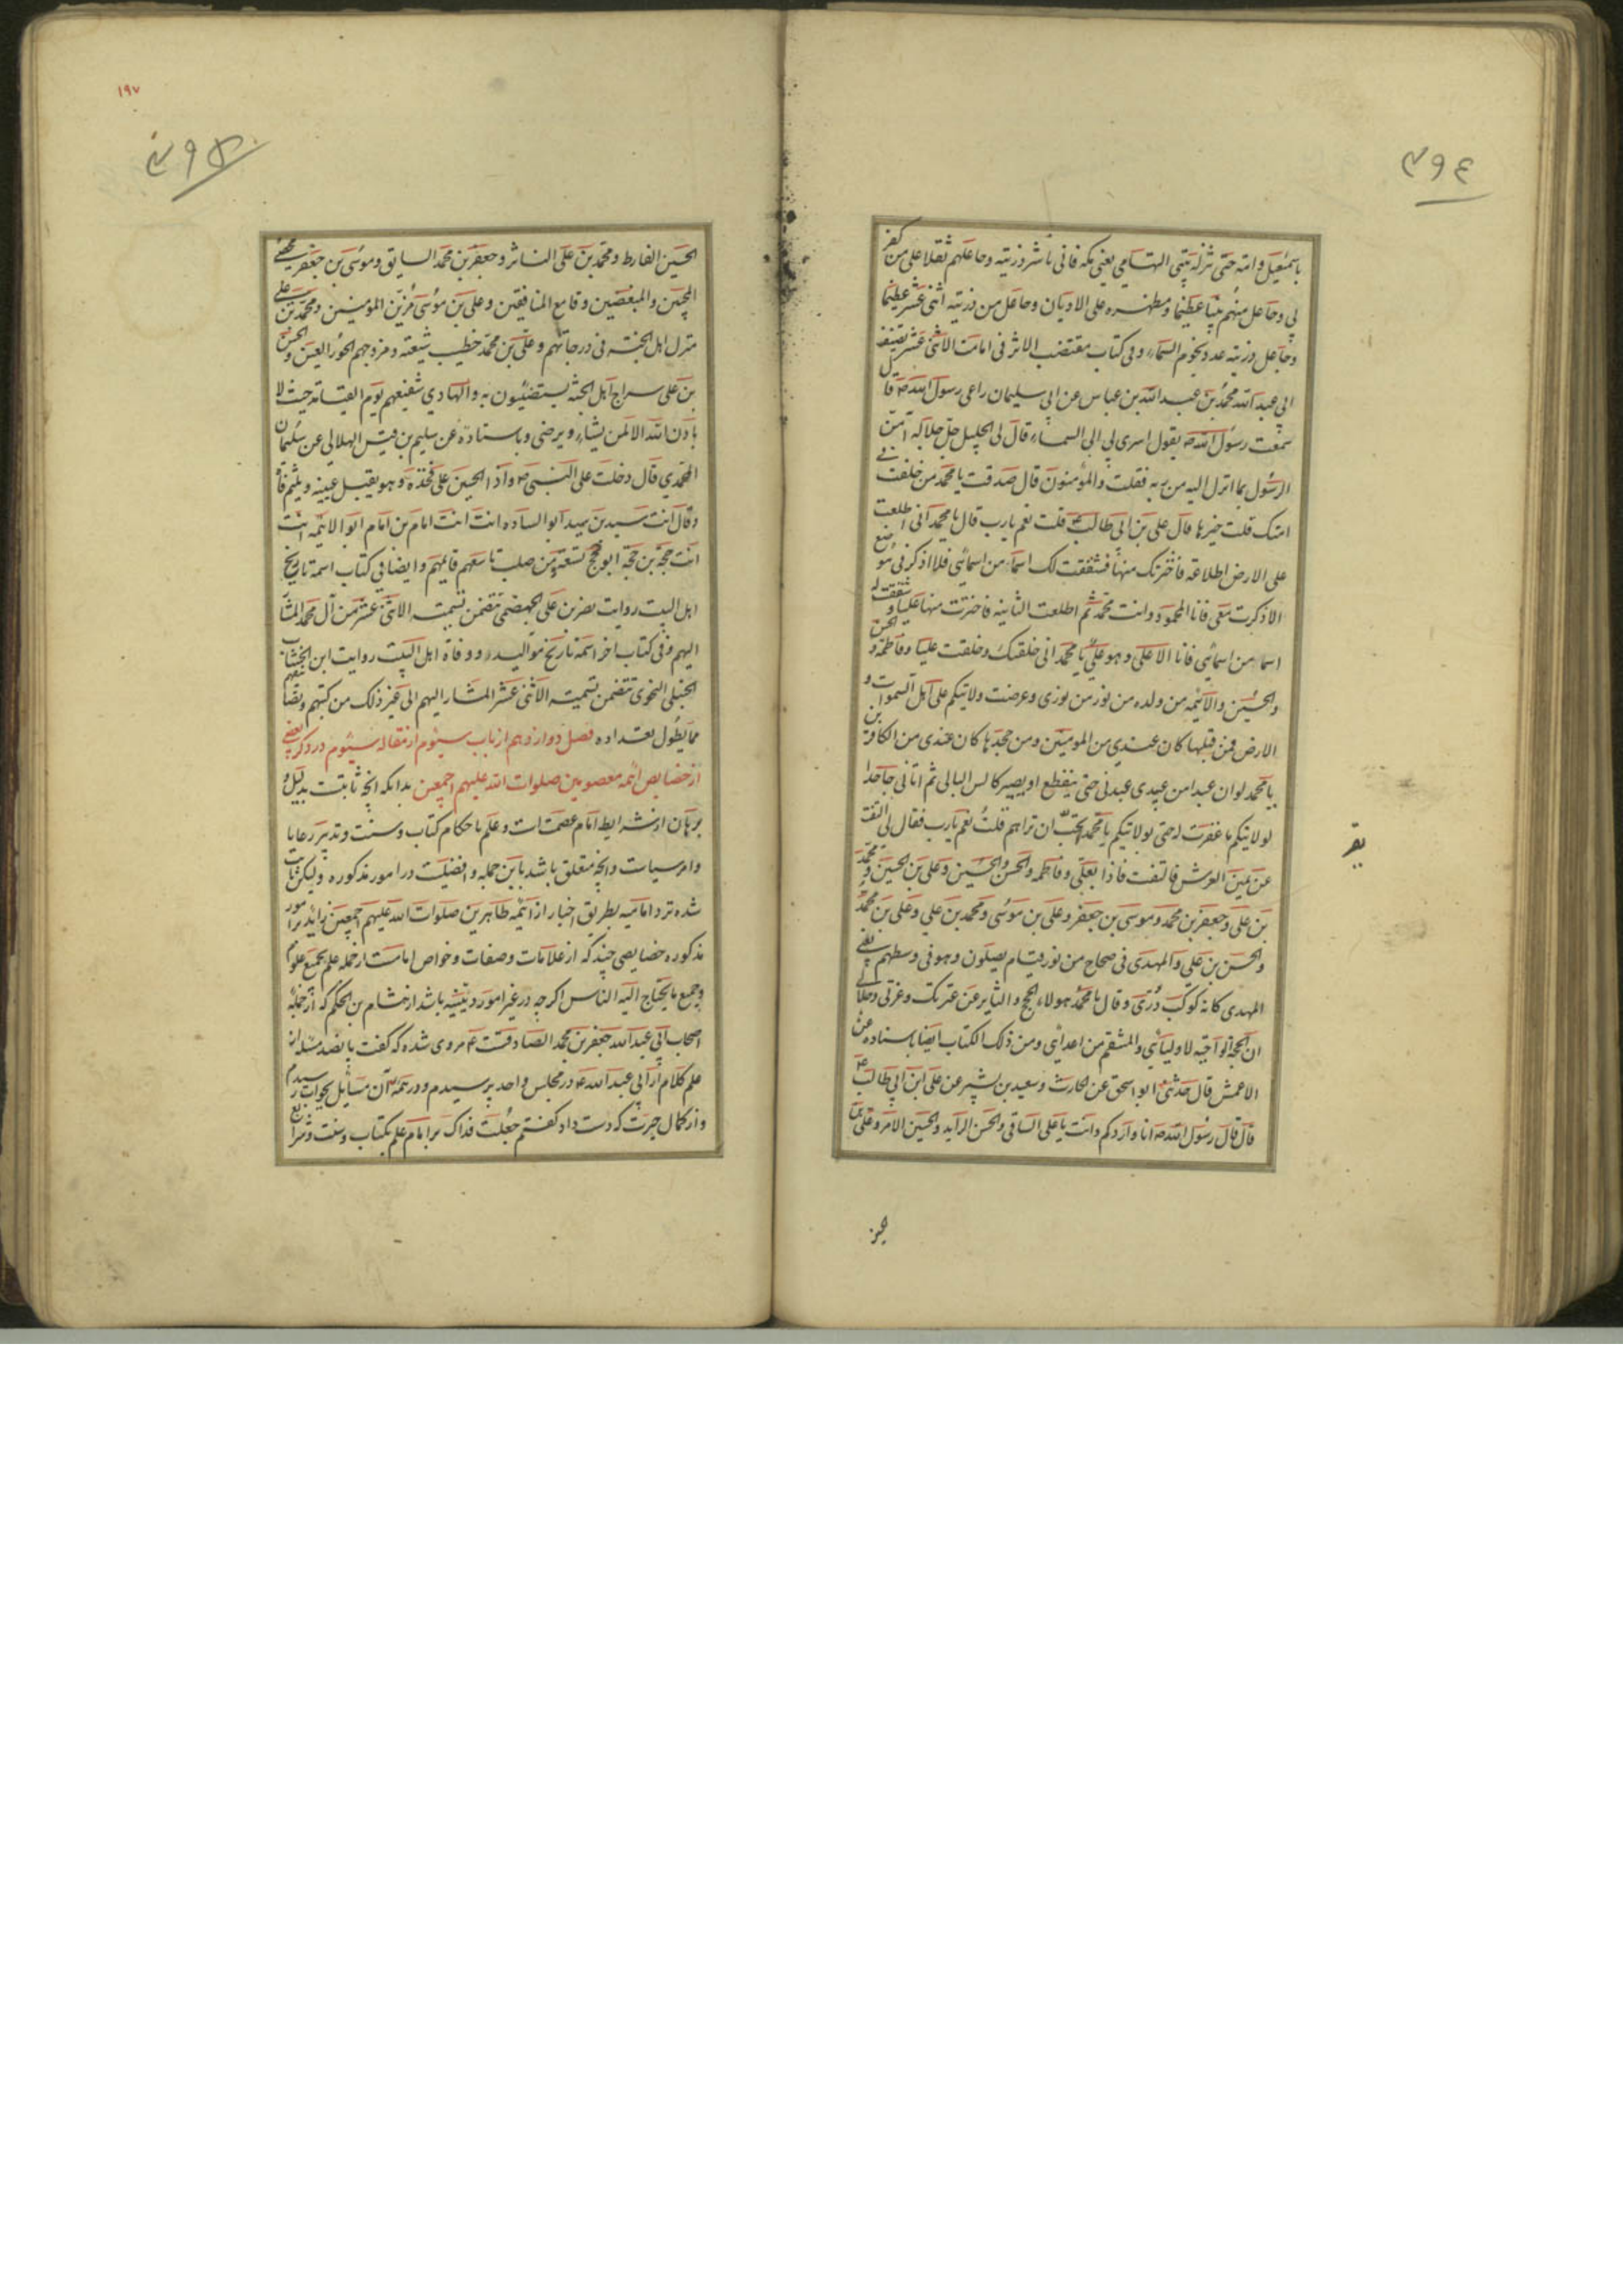 ٣٩٤
باسمعيل وامته حتى تنزله بيتى التهامي يعني مكه فانى ناشر ذريته وجاعلهم ثقلا على من كفر
بي وجاعل منهم نبيا عظيما ومظهره على الاديان وجاعل من ذريته اثنى عشر عظيما
وجاعل ذريته عدد نجوم السماء وفى كتاب مقتضب الاثر فى امامت الاثنى عشر تصنيف
ابي عبد الله محمد بن عبد الله بن عياش عن ابي سليمان راعى رسول الله ص قال
سمعت رسول الله ص يقول اسرى بي الى السماء قال لى الجليل جل جلاله آمن
الرسول بما انزل اليه من ربه فقلت والمؤمنون قال صدقت يا محمد من خلفت فى
امتك قلت خيرها قال على بن ابى طالب قلت نعم يارب قال يا محمد انى اطلعت
على الارض اطلاعه فاخترتك منها فشققت لك اسما من اسمائى فلا اذكر فى موضع
الا ذكرت معى فانا المحمود وانت محمد ثم اطلعت الثانيه فاخترت منها عليا وشققت له
اسما من اسمائى فانا الاعلى وهو على يا محمد انى خلقتك وخلقت عليا وفاطمة والحسن
والحسين والائمه من ولده من نور من نورى وعرضت ولايتكم على اهل السموات و
الارض فمن قبلها كان عندى من المومنين ومن جحدها كان عندى من الكافرين
يا محمد لو ان عبدا من عبيدى عبدنى حتى ينقطع او يصير كالشن البالى ثم اتانى جاحدا
لولايتكم ما غفرت له حتى بولايتكم يا محمد تحب ان تراهم قلت نعم يارب فقال لى التفت
عن يمين العرش فالتفت فاذا بعلى وفاطمه والحسن والحسين وعلى بن الحسين ومحمد
بن على وجعفر بن محمد وموسى بن جعفر وعلى بن موسى ومحمد بن على وعلى بن محمد
والحسن بن على والمهدى فى ضحاح من نور قيام يصلون وهو فى وسطهم يعنى
المهدى كانه كوكب درى وقال يا محمد هولاء الحجج والثاير من عترتك وعزتى وجلالى
ان الحجة الواجبة لاوليائى والمنتقم من اعدائى ومن ذلك الكتاب ايضا باسناده عن
الاعمش قال حدثنى ابو اسحق عن الحارث وسعيد بن بشير عن على ابن ابي طالب ع
قال قال رسول الله ص انا واردكم وانت يا على الساقى والحسن الرايد والحسين الامر وعلى بن
١٩٧
٣٩٥
الحسين الفارط ومحمد بن على الناشر وجعفر بن محمد السايق وموسى بن جعفر محصى
المحبين والمبغضين وقامع المنافقين وعلى بن موسى مزين المومنين ومحمد بن على
منزل اهل الجنة فى درجاتهم وعلى بن محمد خطيب شيعته ومزوجهم الحور العين والحسن
بن على سراج اهل الجنه يستضيئون به والهادي شفيعهم يوم القيامة حيث لا
ياذن الله الا لمن يشاء ويرضى وباسناده عن سليم بن قيس الهلالى عن سلمان
المحمدي قال دخلت على النبى ص واذا الحسين على فخذه وهو يقبل عينيه ويلثم فاه
وقال انت سيد بن سيد ابو الساده انت امام بن امام ابو الائمه انت
انت حجة بن حجة ابو حجج تسعة من صلبك تاسعهم قائمهم وايضا فى كتاب اسمه تاريخ
اهل البيت روايت نصر بن على الجهضمى تتضمن تسميت الاثنى عشر من آل محمد المشار
اليهم وفى كتاب اخر اسمه تاريخ مواليد ووفاة اهل البيت روايت ابن الخشاب
الحنبلى النحوى تتضمن تسميت الاثنى عشر المشار اليهم الى غير ذلك من كتبهم وتصانيفهم
مما يطول تعداده فصل دوازدهم از باب سيوم از مقاله سيوم در ذكر بعضى
از خصايص ائمه معصومين صلوات الله عليهم اجمعين بدانكه انچه ثابتست بدليل و
برهان از شرايط امام عصمت است وعلم باحكام كتاب وسنت وتدبير رعايا
وامر سياسات وانچه متعلق باشد باين جمله وافضليت در امور مذكوره وليكن ثابت
شده نزد اماميه بطريق اخبار از ائمه طاهرين صلوات الله عليهم اجمعين زايد بر امور
مذكوره خصايصى چند كه از علامات وصفات وخواص امامست از جمله علم بجميع علوم
وجميع ما يحتاج اليه الناس اكرچه در غير امور دينيه باشد از هشام بن الحكم كه از جمله
اصحاب ابى عبد الله جعفر بن محمد الصادقست ع مروى شده كه كفت پانصد مسله از
علم كلام از ابى عبد الله ع در مجلس واحد پرسيدم ودر همه آن مسايل بجواب رسيدم
واز كمال حيرت كه دست داد كفتم جعلت فداك بر امام علم بكتاب وسنت وشرايع